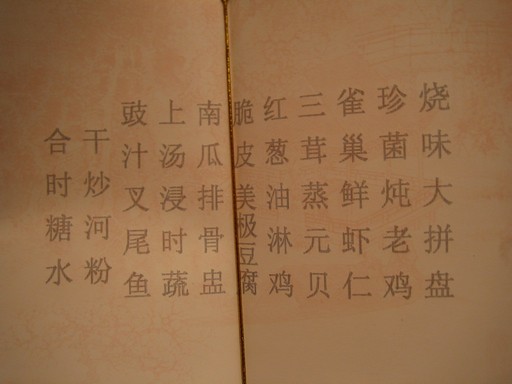 烧味大拼盘
珍菌炖老鸡
雀巢鲜虾仁
三茸蒸元贝
红葱油淋鸡
脆皮美极豆腐
南瓜排骨盅
上汤浸时蔬
豉汁叉尾鱼
干炒河粉
合时糖水